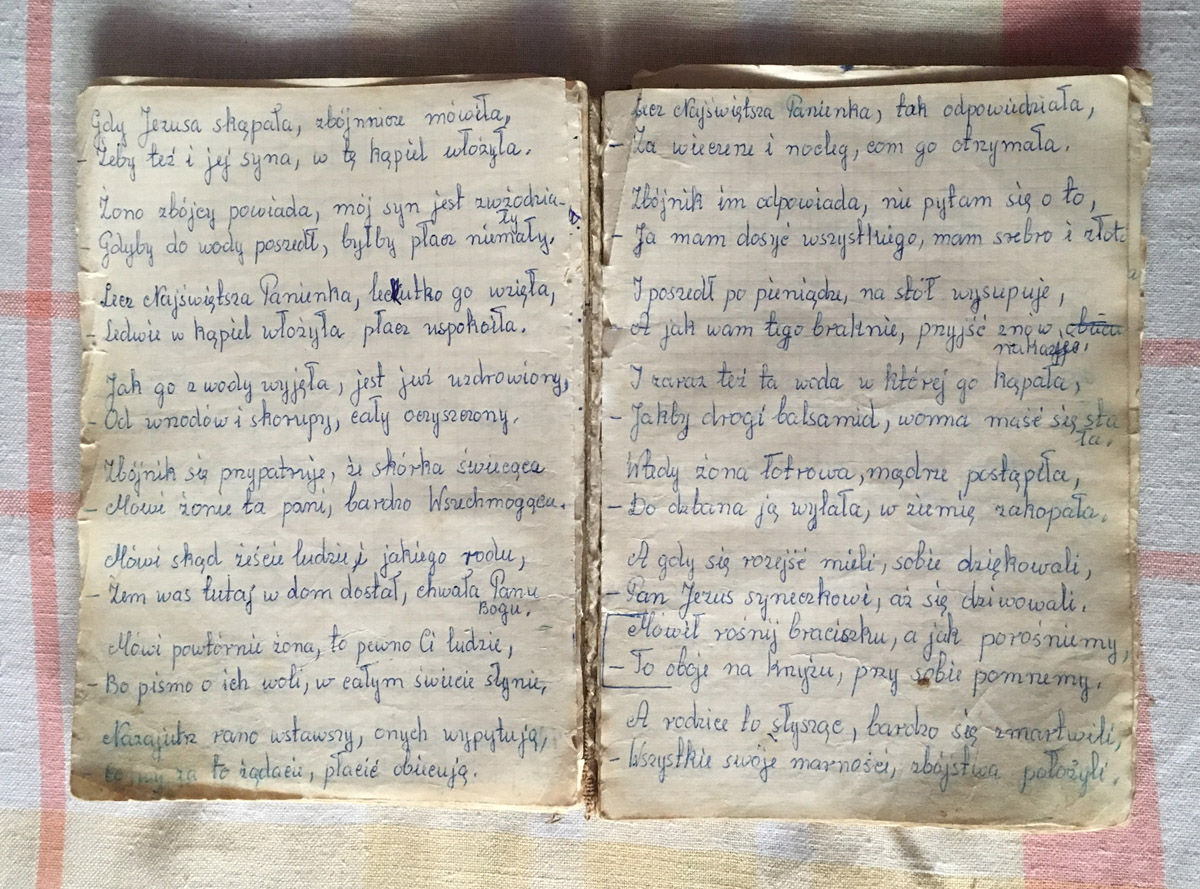 Gdy Jezusa skąpała, zbójnnicze mówiła,
- Żeby też i jej syna, w tę kąpiel włożyła.
Żono zbójcy powiada, mój syn jest zwrzodzia-
ły
- Gdyby do wody poszedł, byłby płacz niemały.
Lecz Najświętsza Panienka, leciutko go wzięła,
- Ledwie w kąpiel włożyła płacz uspokoiła.
Jak go z wody wyjęła, jest już uzdrowiony,
- Od wrzodów i skorupy, cały oczyszczony.
Zbójnik się przypatruje, że skórka świecąca
- Mówi żonie ta pani, bardzo Wszechmogąca.
Mówi skąd żeście ludzie i jakiego rodu,
- Żem was tutaj w dom dostał, chwała Panu
Bogu.
Mówi powtórnie żona, to pewno Ci ludzie,
- Bo pismo o ich woli, w całym świecie słynie,
Nazajutrz rano wstawszy, onych wypytują,
za to żądacie, płacić obiecują.
Lecz Najświętsza Panienka, tak odpowiedziała,
- Za wieczerze i nocleg, com go otrzymała.
Zbójnik im odpowiada, nie pytam się o to,
- Ja mam dosyć wszystkiego, mam srebro i złoto
I poszedł po pieniądze, na stół wysupuje,
- A jak wam tego braknie, przyjść znów
nakazuje.
I zaraz też ta woda w której go kąpała,
- Jakby drogi balsamid, wonna maść się sta
ła.
Wtedy żona łotrowa, mądrze postąpiła,
- Do dzbana ją wylała, w ziemię zakopała.
A gdy się rozejść mieli, sobie dziękowali,
- Pan Jezus syneczkowi, aż się dziwowali.
Mówił rośnij braciszku, a jak porośniemy,
- To oboje na krzyżu, przy sobie pomrzemy.
A rodzice to słysząc, bardzo się zmartwili,
- Wszystkie swoje marności, zbójstwa położyli.